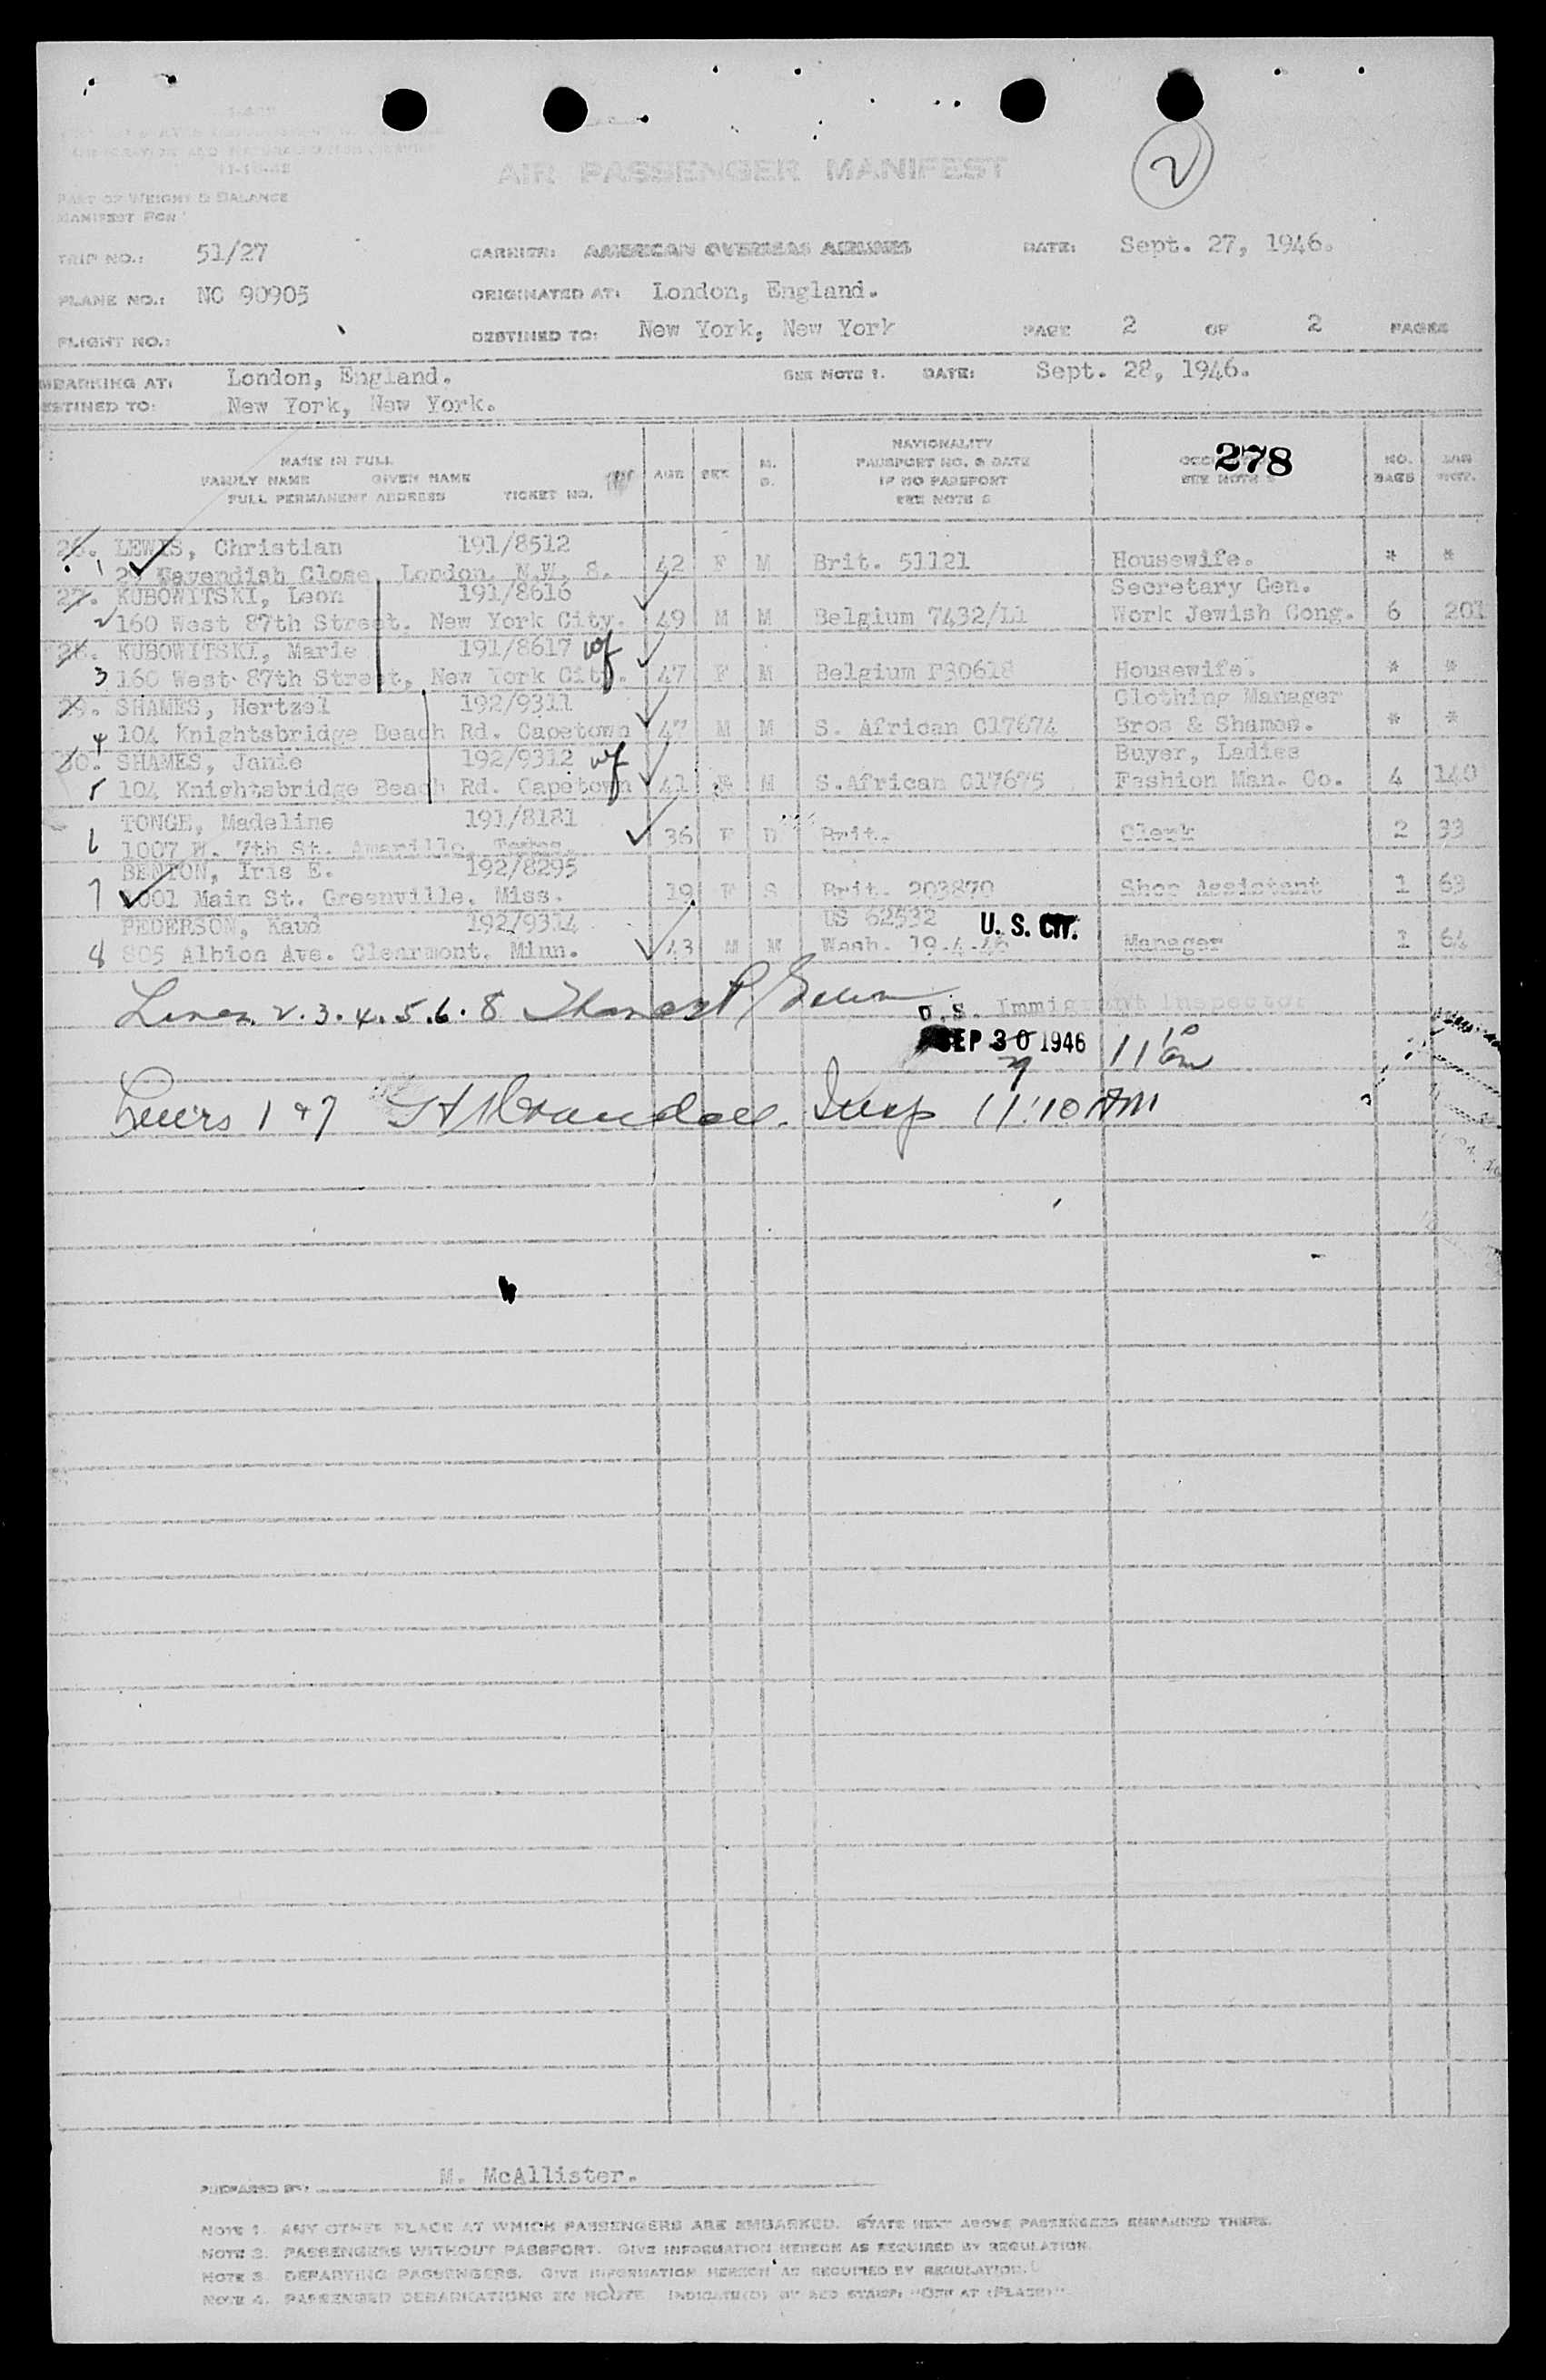 2
I-466
11-15-45
AIR PASSENGER MANIFEST
PART OF WEIGHT & BALANCE
MANIFEST FOR
TRIP NO.: 51/27 CARRIER: AMERICAN OVERSEAS AIRLINES DATE: Sept. 27, 1946.
PLANE NO.: NC 90905 ORIGINATED AT: London, England.
FLIGHT NO.: DESTINED TO: New York, New York PAGE 2 OF 2 PAGES
EMBARKING AT: London, England. SEE NOTE 1. DATE: Sept. 28, 1946.
DESTINED TO: New York, New York.
NAME IN FULL
FAMILY NAME GIVEN NAME
FULL PERMANENT ADDRESS TICKET NO. AGE SEX M. S. NATIONALITY PASSPORT NO. & DATE IF NO PASSPORT SEE NOTE 2 278 SEE NOTE NO. BAGS
26. LEWIS, Christian 191/8512
1 Close, London, N.W. 8. 42 F M Brit. 51121 Housewife. * *
27. KUBOWITSKI, Leon 191/8616 Secretary Gen.
2 160 West 87th Street. New York City. 49 M M Belgium 7432/L1 Work Jewish Cong. 6 201
28. KUBOWITSKI, Marie 191/8617 wf
3 160 West 87th Street, New York City. 47 F M Belgium F30618 Housewife. * *
29. SHAMES, Hertzel 192/9311 Clothing Manager
4 104 Knightsbridge Beach Rd. Capetown 47 M M S. African C17674 Bros & Shames. * *
30. SHAMES, Janie 192/9312 wf Buyer, Ladies
5 104 Knightsbridge Beach Rd. Capetown 41 M S.African C17675 Fashion Man. Co. 4 140
TONGE, Madeline 191/8181
6 1007 W. 7th St. Amarillo, Texas. 36 F D Brit. Clerk 2 33
BENTON, Iris E. 192/8295
7 1001 Main St. Greenville, Miss. 19 F S Brit. 203870 Shop Assistant 1 63
PEDERSON, Kaud 192/9314 US 62532 U. S. CIT.
8 805 Albion Ave. Clearmont, Minn. 43 M M Wash. 19.4.46 Manager 1 64
Lines 2.3.4.5.6.8
U.S. Immigrant Inspector
SEP 30 1946 11 10 am
1 & 7 Insp 11:10 AM
PREPARED BY: M. McAllister.
NOTE 1. ANY OTHER PLACE AT WHICH PASSENGERS ARE EMBARKED. STATE NEXT ABOVE PASSENGERS EMBARKED THERE.
NOTE 2. PASSENGERS WITHOUT PASSPORT. GIVE INFORMATION HEREON AS REQUIRED BY REGULATION.
NOTE 3. DEPARTING PASSENGERS. GIVE INFORMATION HEREON AS REQUIRED BY REGULATION.
NOTE 4. PASSENGER DEBARKATIONS EN ROUTE INDICATE(D) BY RED STAMP: "OFF AT (PLACE)"